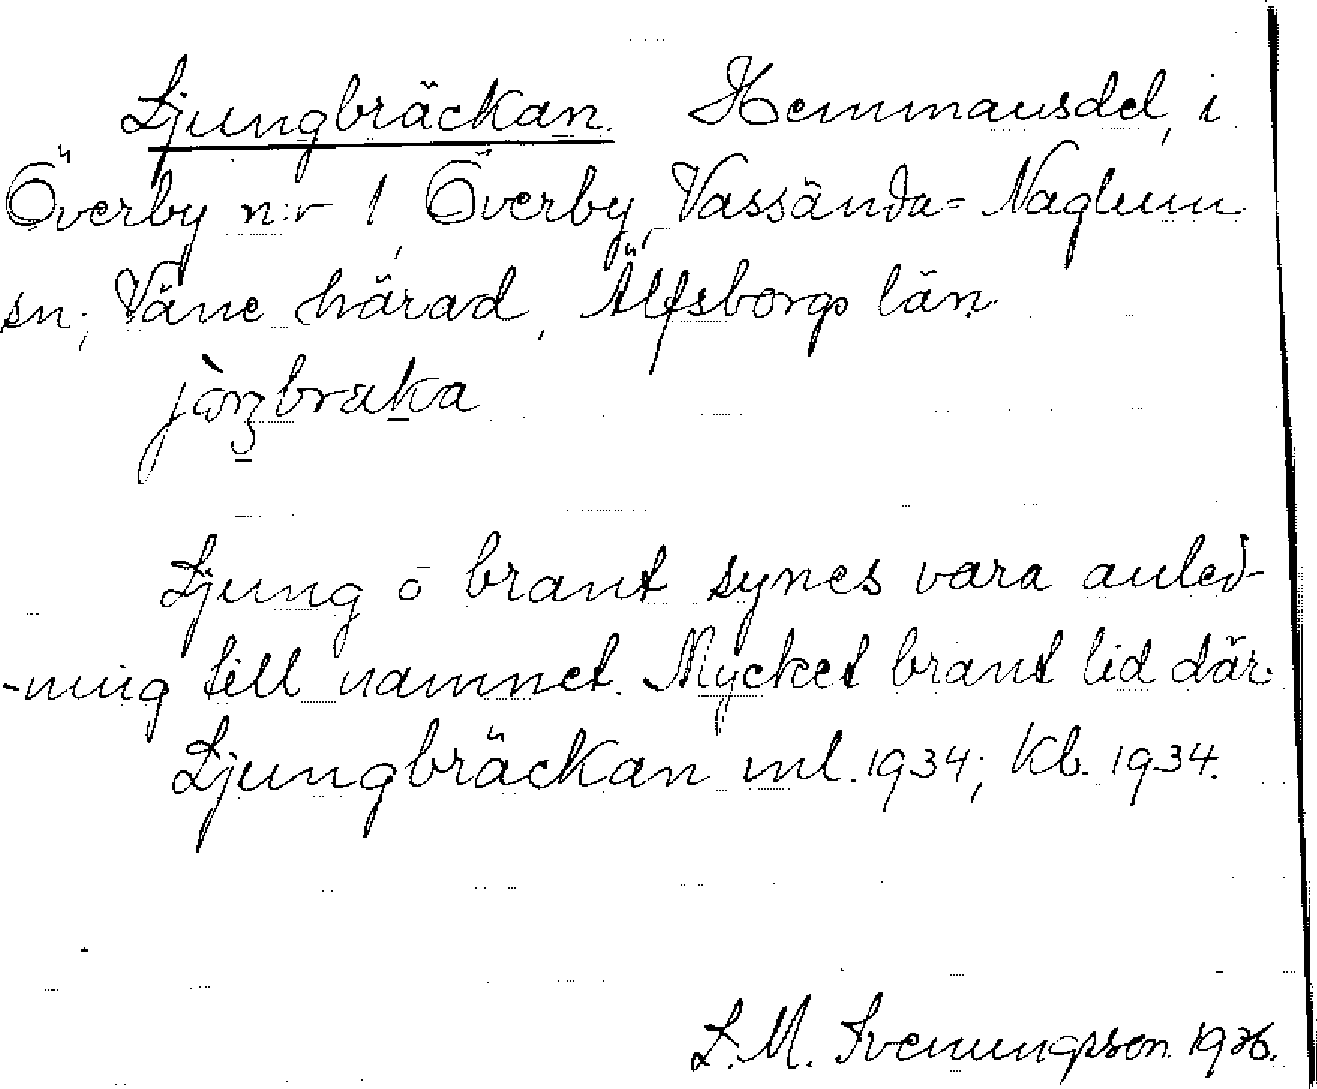 Ljungbräckan. Hemmansdel, i
Överby n:r 1, Överby, Vassända-Naglum
sn; Väne härad, Älfsborgs län
Ljung o brant synes vara anled-
-ning till namnet. Mycket brant lid där.
Ljungbräckan ml. 1934; Kb. 1934.
L. M. Svenungsson 1936.